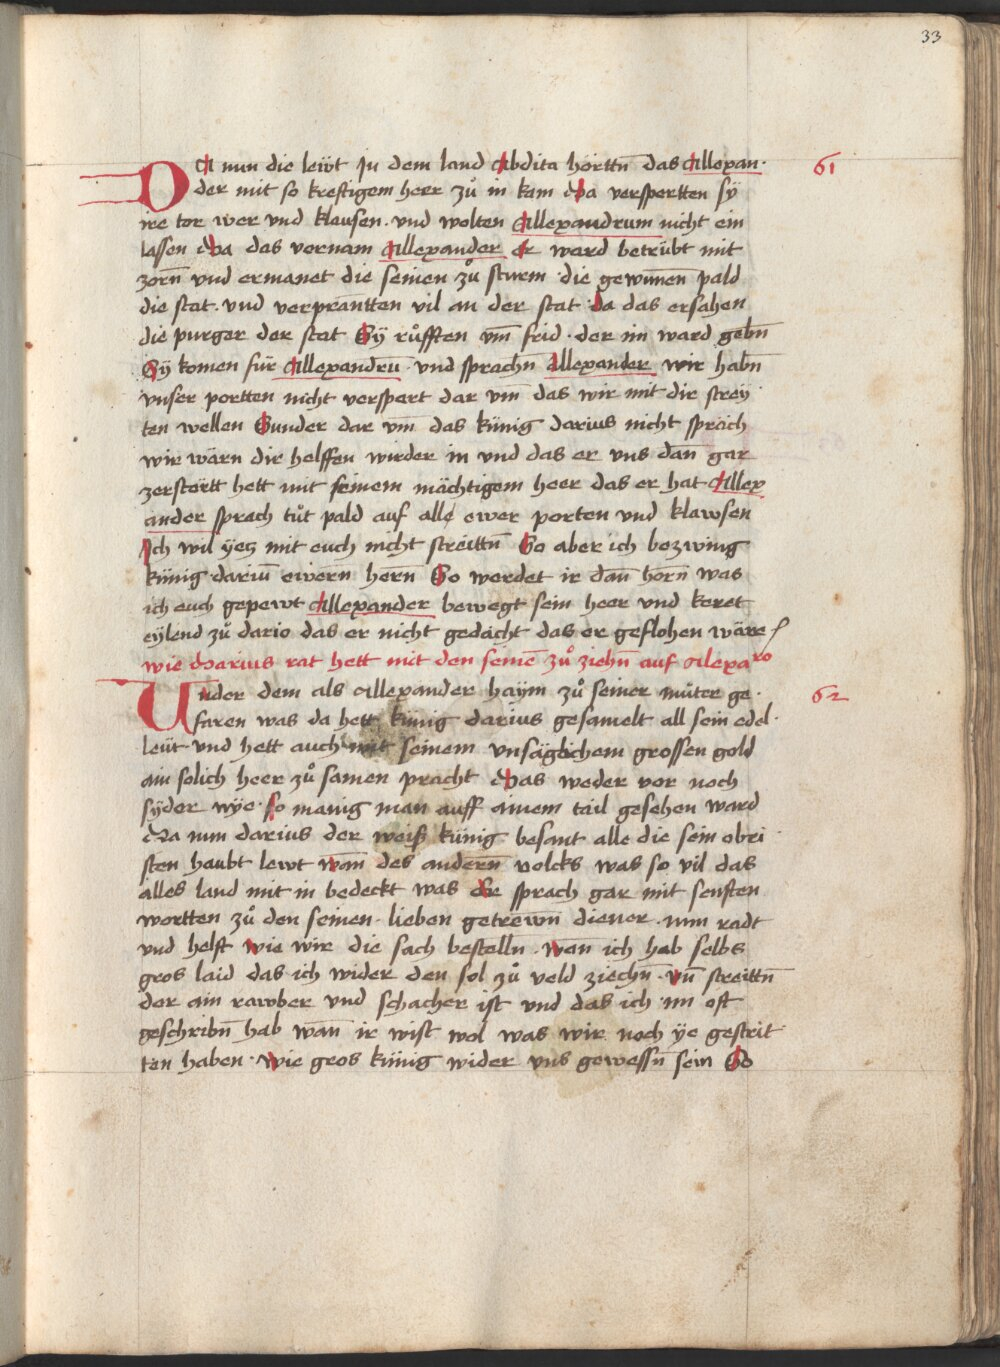 33
DA nun die leẅt Jn dem land Abdita hörttn̄ das Allexan·
der mit so kreftigem heer zů in kam Da verspertten sÿ
ire tor wer vnd klausen · vnd wolten Allexandrum nicht ein
lassen Da das vernam Allexander Er ward betrübt mit
zorn̄ vnd ermanet die seinen zů sturm · die gewūnen pald
die stat · vnd verprantten vil an der stat · Da das ersahen
die purger der stat Sÿ růfften vm̄ frid · der im ward gebn̄
Sÿ komen für Allexandrū · vnd sprachn̄ Allexander wir habn̄
vnser portten nicht verspert dar vm̄ das wir mit dir strey
ten wellen Sunder dar vm̄ das künig darius nicht spräch
wir wärn dir helffen wirder in vnd das er vns dan̄ gar
zerstörtt hett mit seinem mächtigem heer das er hat Allex
ander sprach tůt pald auf alle ewer porten vnd klawsen
Ich wil yetz mit euch nicht streittn̄ So aber ich bezwing
künig dariū ewern̄ hern̄ So werdet ir dan̄ horn̄ was
ich euch gepewt Allexander bewegt sein heer vnd keret
eylend zů dario das er nicht gedächt das er geflohen wäre
61
wie Darius rat hett mit den seinē zů ziehn̄ auf Alexaro
Vnder dem als Allexander haÿm zů seiner můter ge·
faren was da hett künig darius gesamelt all sein edel·
leüt vnd hett auch mit seinem vnsäglichem grossen gold
ain solich heer zů samen pracht Das weder vor noch
sÿder wÿe · so manig man auff ainem tail gesehen ward
Da nun darius der weiß künig besant alle die sein obri
sten haubt lewt wan̄ des andern̄ volcks was so vil das
alles land mit in bedeckt was Er sprach gar mit senften
wortten zů den seinen · lieben getrewn̄ diener · nun radt
vnd helft wie wir die sach bestelln · wan̄ ich hab selbs
gros laid das ich wider den sol zů veld ziechn̄ · vn̄ streittn̄
der ain rawber vnd schacher ist vnd das ich im oft
geschribn̄ hab wan̄ ir wist wol was wir noch ÿe gestrit
ten haben · wie gros künig wider vns gewessn̄ sein So
62